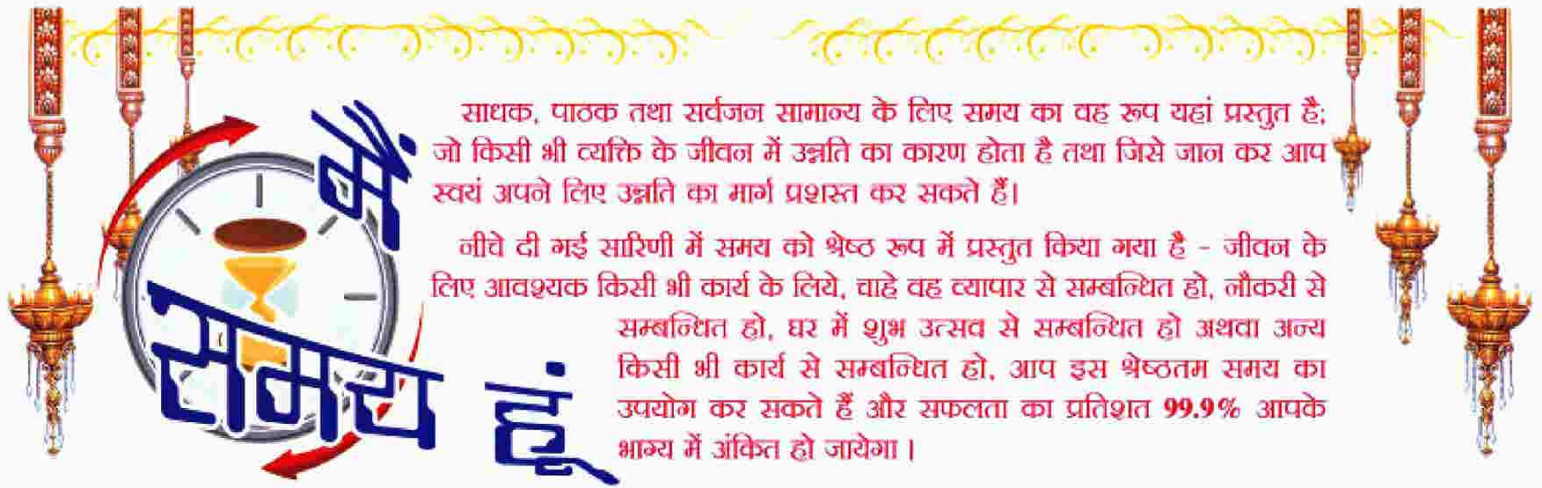 मैं
समय हूं
साधक, पाठक तथा सर्वजन सामान्य के लिए समय का वह रूप यहां प्रस्तुत है;
जो किसी भी व्यक्ति के जीवन में उन्नति का कारण होता है तथा जिसे जान कर आप
स्वयं अपने लिए उन्नति का मार्ग प्रशस्त कर सकते हैं।
नीचे दी गई सारिणी में समय को श्रेष्ठ रूप में प्रस्तुत किया गया है - जीवन के
लिए आवश्यक किसी भी कार्य के लिये, चाहे वह व्यापार से सम्बन्धित हो, नौकरी से
सम्बन्धित हो, घर में शुभ उत्सव से सम्बन्धित हो अथवा अन्य
किसी भी कार्य से सम्बन्धित हो, आप इस श्रेष्ठतम समय का
उपयोग कर सकते हैं और सफलता का प्रतिशत 99.9% आपके
भाग्य में अंकित हो जायेगा।